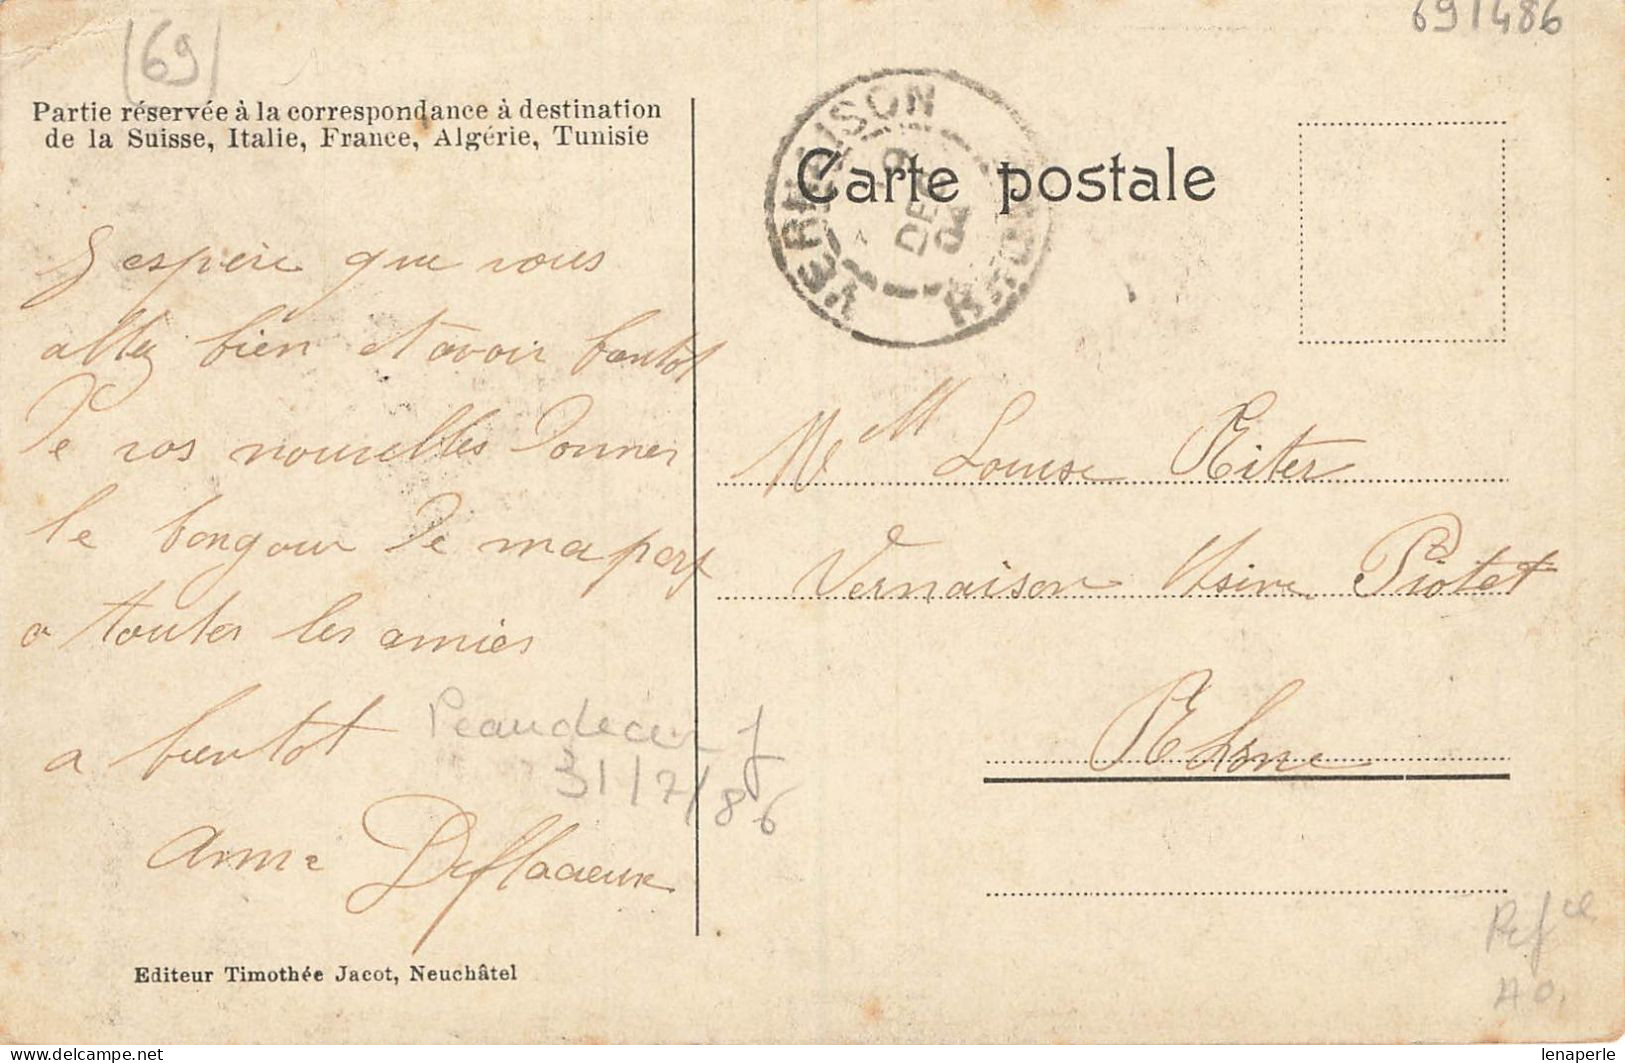 (69)
691486
Partie réservée à la correspondance à destination
de la Suisse, Italie, France, Algérie, Tunisie
Carte postale
VERNAISON
9
DEC
04
RHONE
J espère que vous
allez bien et avoir bontot
De vos nouvelles Donner
le bongour De ma part
a toutes les amies
a bientot
Anna Deflacieux
31/7/86
Mell Louise Riter
Vernaison Usine Piotet
Rhône
Editeur Timothée Jacot, Neuchâtel
lenaperle